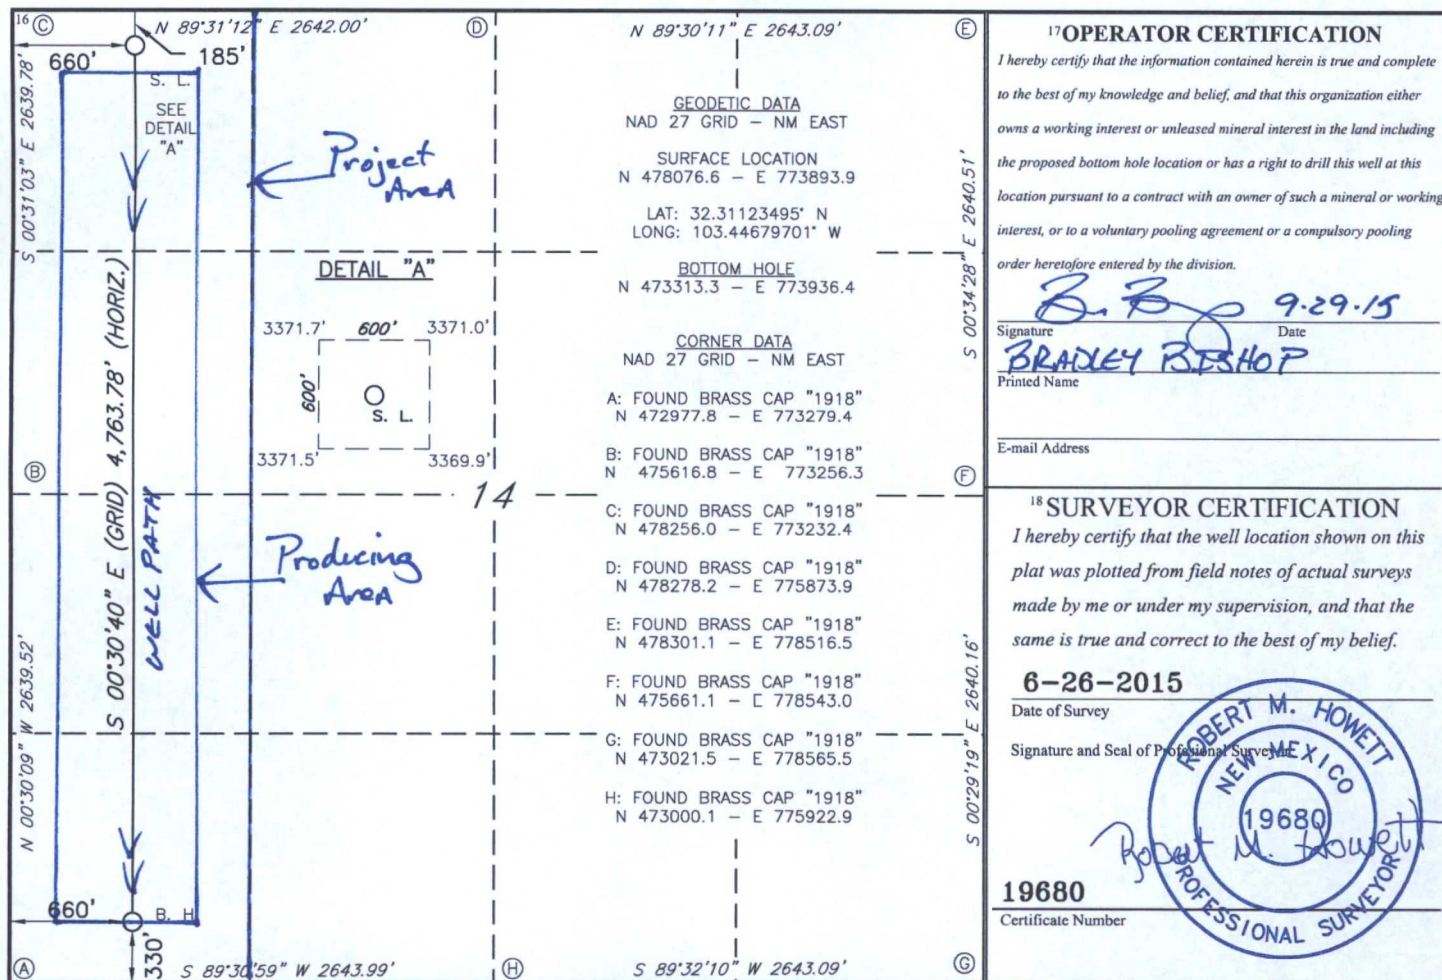 16
C
N 89°31'12" E 2642.00'
D
N 89°30'11" E 2643.09'
E
660'
185'
S. L.
SEE
DETAIL
"A"
S 00°31'03" E 2639.78'
Project
Area
DETAIL "A"
3371.7'
600'
3371.0'
600'
S. L.
3371.5'
3369.9'
B
S 00°30'40" E (GRID) 4,763.78' (HORIZ.)
WELL PATH
14
Producing
Area
N 00°30'09" W 2639.52'
660'
B. H
330'
A
S 89°30'59" W 2643.99'
H
GEODETIC DATA
NAD 27 GRID – NM EAST
SURFACE LOCATION
N 478076.6 – E 773893.9
LAT: 32.31123495° N
LONG: 103.44679701° W
BOTTOM HOLE
N 473313.3 – E 773936.4
CORNER DATA
NAD 27 GRID – NM EAST
A: FOUND BRASS CAP "1918"
N 472977.8 – E 773279.4
B: FOUND BRASS CAP "1918"
N 475616.8 – E 773256.3
C: FOUND BRASS CAP "1918"
N 478256.0 – E 773232.4
D: FOUND BRASS CAP "1918"
N 478278.2 – E 775873.9
E: FOUND BRASS CAP "1918"
N 478301.1 – E 778516.5
F: FOUND BRASS CAP "1918"
N 475661.1 – E 778543.0
G: FOUND BRASS CAP "1918"
N 473021.5 – E 778565.5
H: FOUND BRASS CAP "1918"
N 473000.1 – E 775922.9
S 00°34'28" E 2640.51'
F
S 00°29'19" E 2640.16'
S 89°32'10" W 2643.09'
G
17 OPERATOR CERTIFICATION
I hereby certify that the information contained herein is true and complete
to the best of my knowledge and belief, and that this organization either
owns a working interest or unleased mineral interest in the land including
the proposed bottom hole location or has a right to drill this well at this
location pursuant to a contract with an owner of such a mineral or working
interest, or to a voluntary pooling agreement or a compulsory pooling
order heretofore entered by the division.
9-29-15
Signature Date
BRADLEY BISHOP
Printed Name
E-mail Address
18 SURVEYOR CERTIFICATION
I hereby certify that the well location shown on this
plat was plotted from field notes of actual surveys
made by me or under my supervision, and that the
same is true and correct to the best of my belief.
6-26-2015
Date of Survey
Signature and Seal of Professional Surveyor
ROBERT M. HOWETT
NEW MEXICO
19680
PROFESSIONAL SURVEYOR
Robert M. Howett
19680
Certificate Number